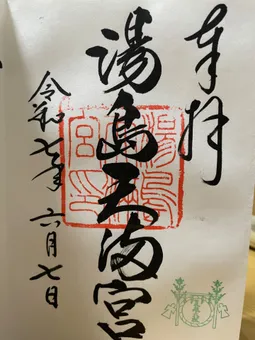 奉拝
湯島天満宮
令和七年六月七日